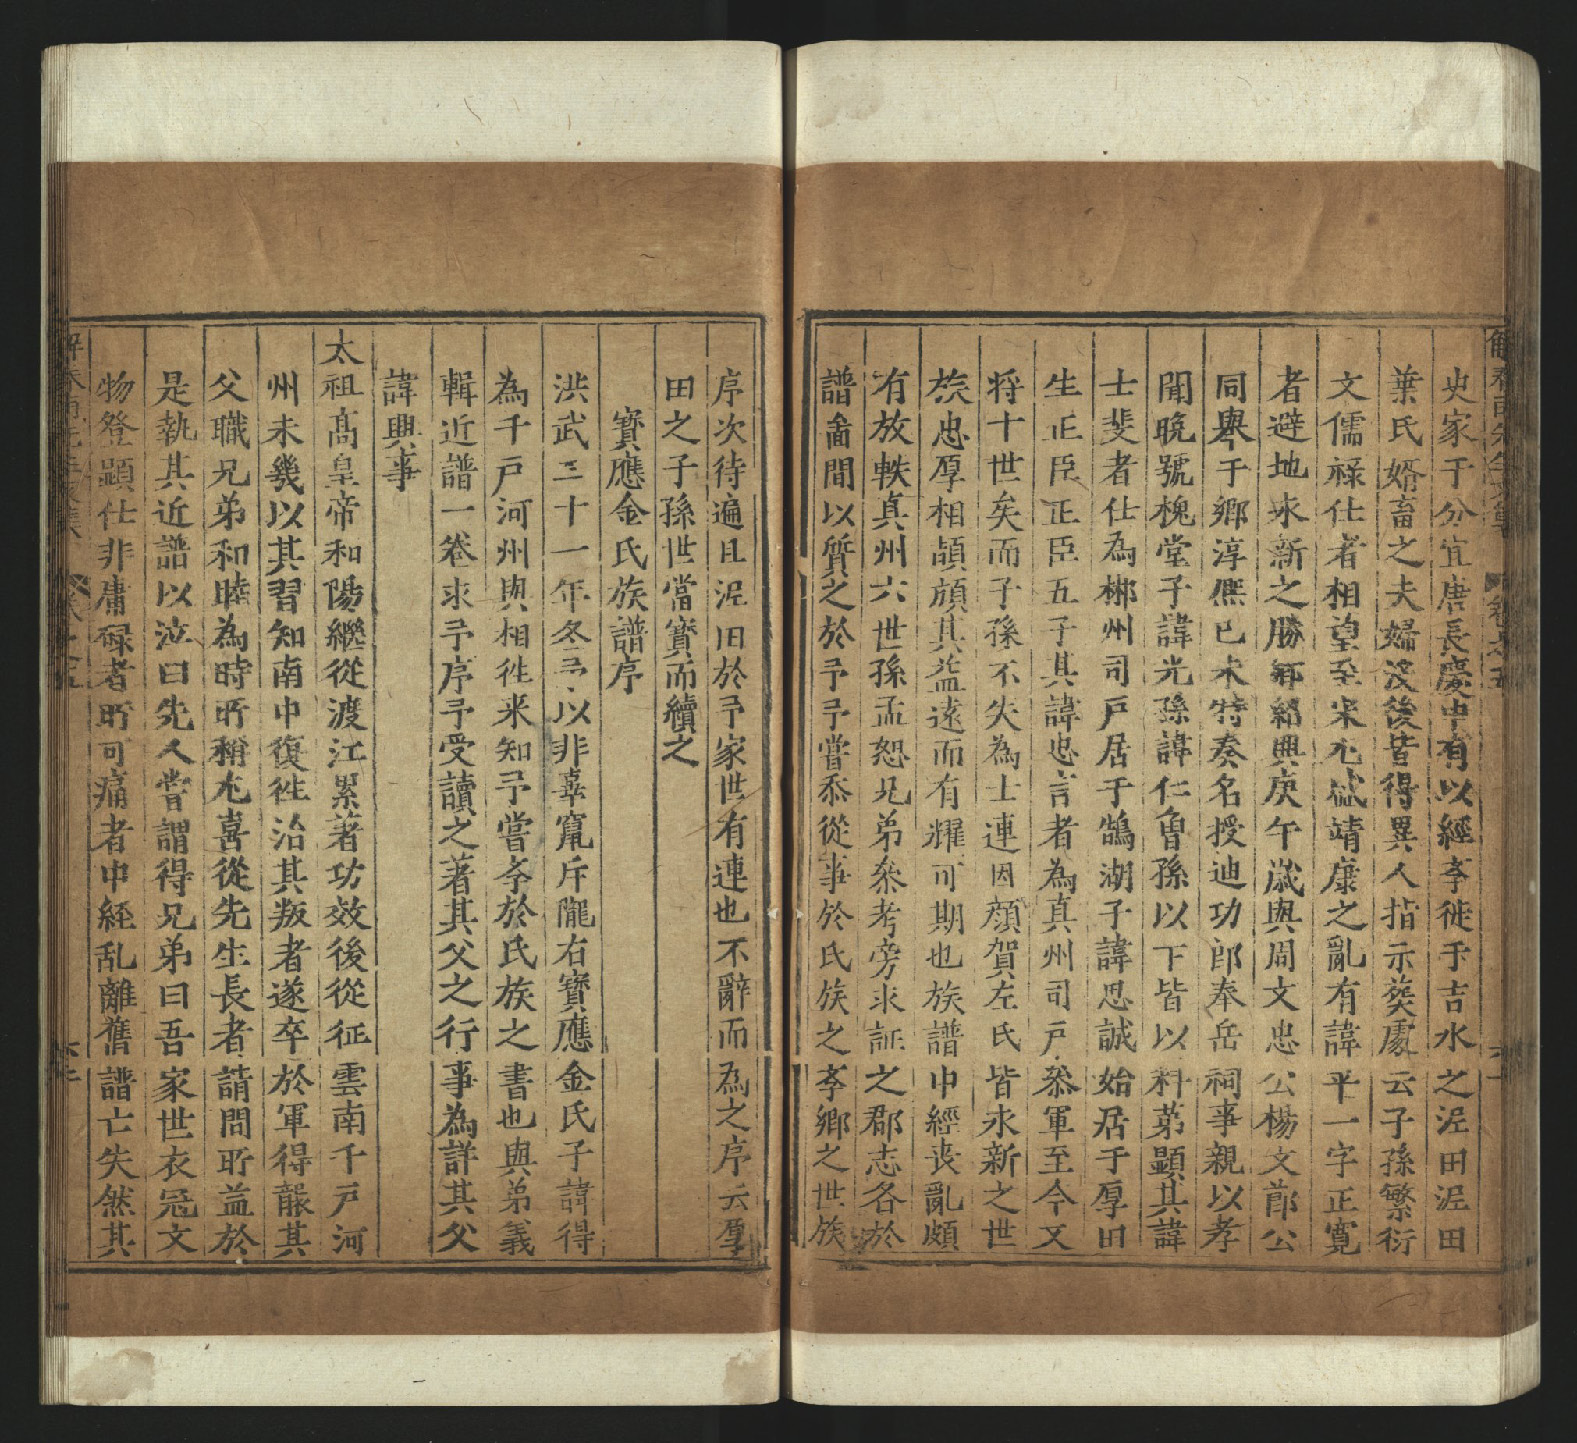 史家于分宜唐長慶中有以經李徙于吉水之泥田泥田
葉氏婿畜之夫婦沒後皆得異人指示葬處云子孫繁衍
文儒祿仕者相望至宋尤盛靖康之亂有諱平一字正寬
者避地永新之勝鄉紹興庚午歲與周文忠公楊文節公
同舉于鄉淳熈己未特奏名授迪功郎奉岳祠事親以孝
聞晚號槐堂子諱光孫諱仁曾孫以下皆以科第顯其諱
士斐者仕為郴州司戶居于鵠湖子諱思誠始居于厚田
生正臣正臣五子其諱忠言者為真州司戶叅軍至今又
将十世矣而子孫不失為士連因顔賀左氏皆永新之世
族忠厚相頡頏其益遠而有耀可期也族譜中經丧亂頗
有放軼真州六世孫孟恕兄弟叅考旁求証之郡志各於
譜畣間以質之於予予嘗忝從事於氏族之李鄉之世族
序次待遍且泥田於予家世有連也不辭而為之序云厚
田之子孫世當寳而續之
寳應金氏族譜序
洪武三十一年冬予以非辜竄斥隴右寳應金氏子諱得
為千戸河州與相徃来知予嘗李於氏族之書也與弟義
輯近譜一卷求予序予受讀之著其父之行事為詳其父
諱興事
太祖髙皇帝和陽繼從渡江累著功效後從征雲南千戸河
州未幾以其習知南中復徃治其叛者遂卒於軍得襲其
父職兄弟和睦為時所稱尤喜從先生長者請問所益於
是執其近譜以泣曰先人嘗謂得兄弟曰吾家世衣冠文
物登顯仕非庸碌者所可痛者中経乱離舊譜亡失然其